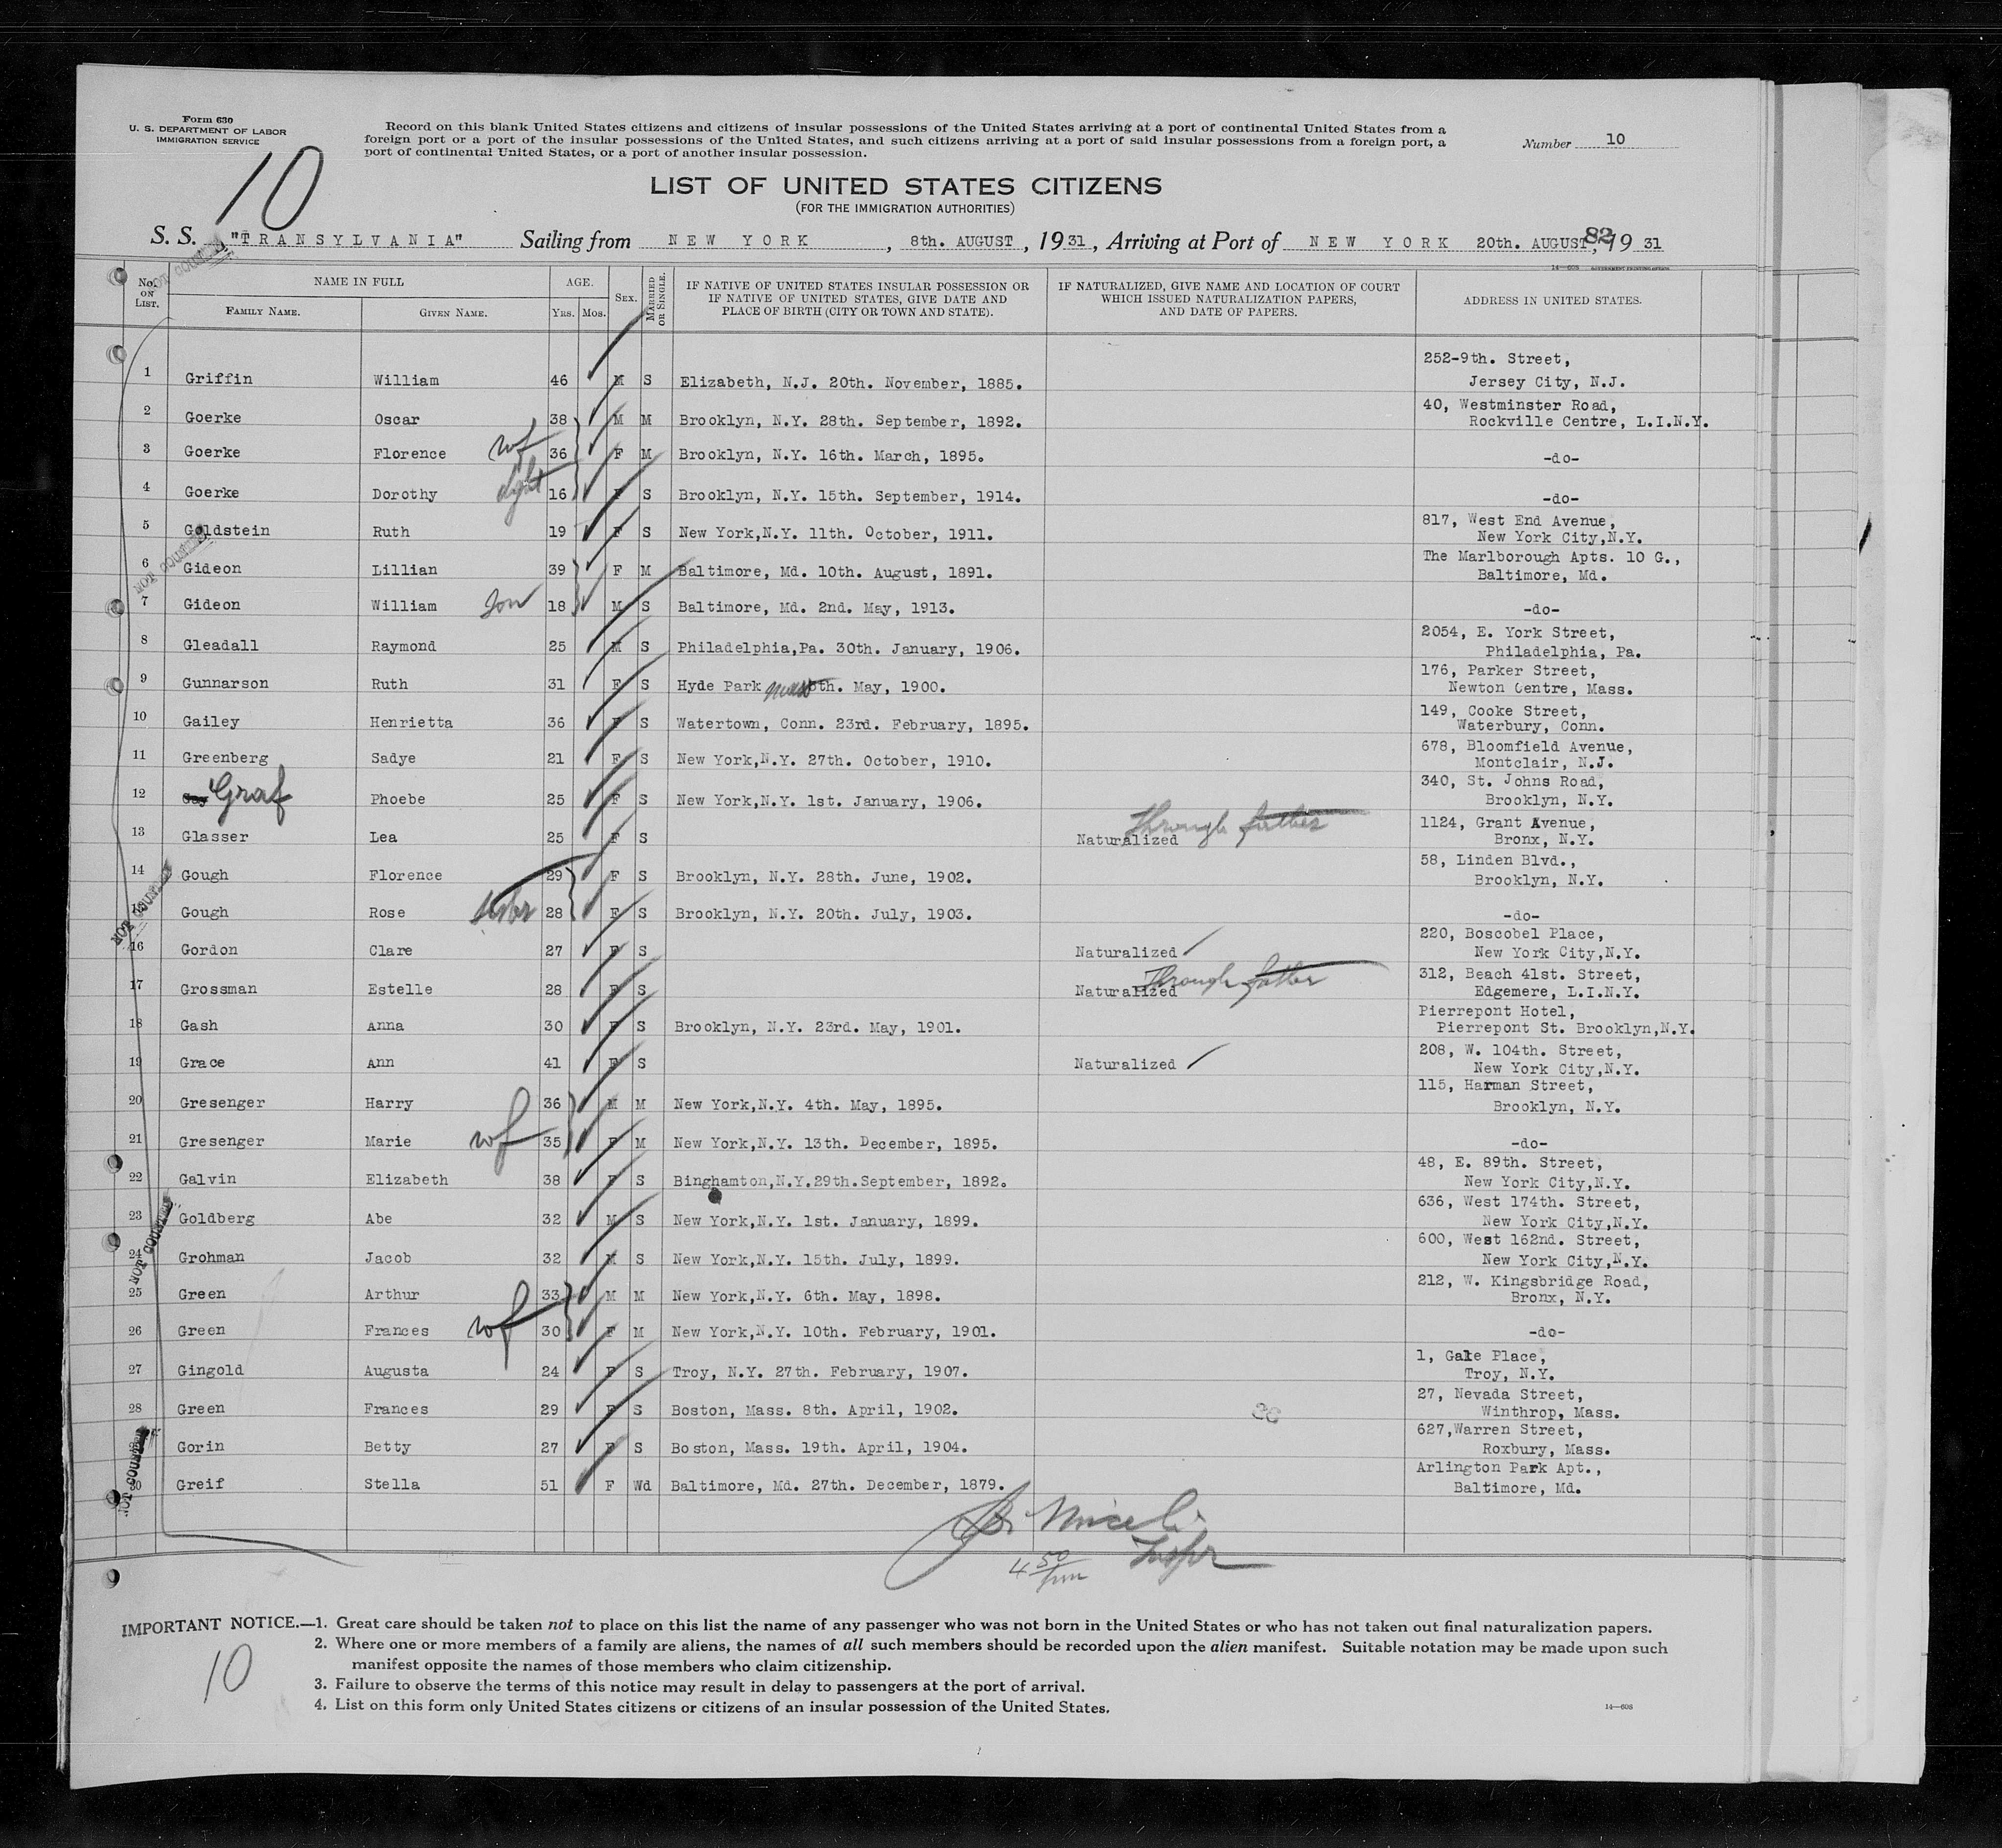 Form 630
U. S. DEPARTMENT OF LABOR
IMMIGRATION SERVICE
10
Record on this blank United States citizens and citizens of insular possessions of the United States arriving at a port of continental United States from a
foreign port or a port of the insular possessions of the United States, and such citizens arriving at a port of said insular possessions from a foreign port, a
port of continental United States, or a port of another insular possession.
Number 10
LIST OF UNITED STATES CITIZENS
(FOR THE IMMIGRATION AUTHORITIES)
S. S. "TRANSYLVANIA" Sailing from NEW YORK, 8th. AUGUST, 1931, Arriving at Port of NEW YORK 20th. AUGUST, 1931
82
14—608 GOVERNMENT PRINTING OFFICE
No. ON LIST. NAME IN FULL FAMILY NAME. GIVEN NAME. AGE. YRS. MOS. SEX. MARRIED OR SINGLE. IF NATIVE OF UNITED STATES INSULAR POSSESSION OR IF NATIVE OF UNITED STATES, GIVE DATE AND PLACE OF BIRTH (CITY OR TOWN AND STATE). IF NATURALIZED, GIVE NAME AND LOCATION OF COURT WHICH ISSUED NATURALIZATION PAPERS, AND DATE OF PAPERS. ADDRESS IN UNITED STATES.
1 Griffin William 46 M S Elizabeth, N.J. 20th. November, 1885. 252-9th. Street, Jersey City, N.J.
2 Goerke Oscar 38 M M Brooklyn, N.Y. 28th. September, 1892. 40, Westminster Road, Rockville Centre, L.I.N.Y.
3 Goerke Florence wf 36 F M Brooklyn, N.Y. 16th. March, 1895. -do-
4 Goerke Dorothy dght 16 F S Brooklyn, N.Y. 15th. September, 1914. -do-
5 Goldstein Ruth 19 F S New York,N.Y. 11th. October, 1911. 817, West End Avenue, New York City,N.Y.
6 Gideon Lillian 39 F M Baltimore, Md. 10th. August, 1891. The Marlborough Apts. 10 G., Baltimore, Md.
7 Gideon William Son 18 M S Baltimore, Md. 2nd. May, 1913. -do-
8 Gleadall Raymond 25 M S Philadelphia,Pa. 30th. January, 1906. 2054, E. York Street, Philadelphia, Pa.
9 Gunnarson Ruth 31 F S Hyde Park Mass th. May, 1900. 176, Parker Street, Newton Centre, Mass.
10 Gailey Henrietta 36 F S Watertown, Conn. 23rd. February, 1895. 149, Cooke Street, Waterbury, Conn.
11 Greenberg Sadye 21 F S New York,N.Y. 27th. October, 1910. 678, Bloomfield Avenue, Montclair, N.J.
12 Graf Phoebe 25 F S New York,N.Y. 1st. January, 1906. 340, St. Johns Road, Brooklyn, N.Y.
13 Glasser Lea 25 F S Naturalized through father 1124, Grant Avenue, Bronx, N.Y.
14 Gough Florence 29 F S Brooklyn, N.Y. 28th. June, 1902. 58, Linden Blvd., Brooklyn, N.Y.
15 Gough Rose sister 28 F S Brooklyn, N.Y. 20th. July, 1903. -do-
16 Gordon Clare 27 F S Naturalized 220, Boscobel Place, New York City,N.Y.
17 Grossman Estelle 28 F S Naturalized through father 312, Beach 41st. Street, Edgemere, L.I.N.Y.
18 Gash Anna 30 F S Brooklyn, N.Y. 23rd. May, 1901. Pierrepont Hotel, Pierrepont St. Brooklyn,N.Y.
19 Grace Ann 41 F S Naturalized 208, W. 104th. Street, New York City,N.Y.
20 Gresenger Harry 36 M M New York,N.Y. 4th. May, 1895. 115, Harman Street, Brooklyn, N.Y.
21 Gresenger Marie wf 35 F M New York,N.Y. 13th. December, 1895. -do-
22 Galvin Elizabeth 38 F S Binghamton,N.Y.29th.September, 1892. 48, E. 89th. Street, New York City,N.Y.
23 Goldberg Abe 32 M S New York,N.Y. 1st. January, 1899. 636, West 174th. Street, New York City,N.Y.
24 Grohman Jacob 32 M S New York,N.Y. 15th. July, 1899. 600, West 162nd. Street, New York City,N.Y.
25 Green Arthur 33 M M New York,N.Y. 6th. May, 1898. 212, W. Kingsbridge Road, Bronx, N.Y.
26 Green Frances wf 30 F M New York,N.Y. 10th. February, 1901. -do-
27 Gingold Augusta 24 F S Troy, N.Y. 27th. February, 1907. 1, Gale Place, Troy, N.Y.
28 Green Frances 29 F S Boston, Mass. 8th. April, 1902. 27, Nevada Street, Winthrop, Mass.
29 Gorin Betty 27 F S Boston, Mass. 19th. April, 1904. 627,Warren Street, Roxbury, Mass.
30 Greif Stella 51 F Wd Baltimore, Md. 27th. December, 1879. Arlington Park Apt., Baltimore, Md.
Miceli
Inspr
4 50 pm
IMPORTANT NOTICE.—1. Great care should be taken not to place on this list the name of any passenger who was not born in the United States or who has not taken out final naturalization papers.
2. Where one or more members of a family are aliens, the names of all such members should be recorded upon the alien manifest. Suitable notation may be made upon such
manifest opposite the names of those members who claim citizenship.
3. Failure to observe the terms of this notice may result in delay to passengers at the port of arrival.
4. List on this form only United States citizens or citizens of an insular possession of the United States.
10
14—608